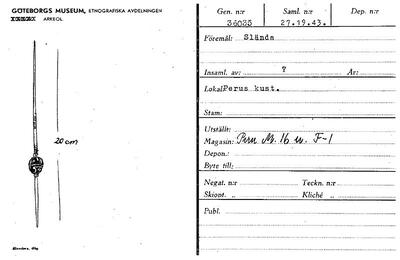 GÖTEBORGS MUSEUM, ETNOGRAFISKA AVDELNINGEN
ARKEOL.
20 cm
Gen. n:r Saml. n:r Dep. n:r
36035 27.19.43.
Föremål: Slända
Insaml. av: ? År:
Lokal Perus kust.
Stam:
Utställt:
Magasin: Peru M. 16 u. F-1
Depon.:
Byte till:
Negat. n:r Teckn. n:r
Skiopt. „ Kliché „
Publ.